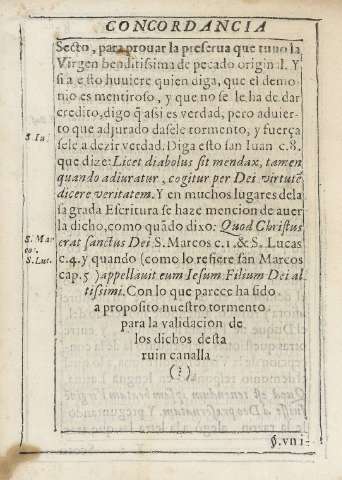 CONCORDANCIA
Secto, para prouar la preserua que tuuo la
Virgen benditissima de pecado original. Y
si a esto huuiere quien diga, que el demo-
nio es mentiroso, y que no se le ha de dar
credito, digo q̃ assi es verdad, pero aduier-
to que adjurado dasele tormento, y fuerça
S. Iu.
sele a dezir verdad. Diga esto san Iuan c.8.
que dize: Licet diabolus sit mendax, tamen
quando adiuratur, cogitur per Dei virtutẽ
dicere veritatem. Y en muchos lugares dela
sagrada Escritura se haze mencion de auer
la dicho, como quãdo dixo: Quod Christus
S. Mar
erat sanctus Dei S. Marcos c.1. & S. Lucas
co.
S. Luc.
c.4. y quando (como lo refiere san Marcos
cap.5) appellauit eum Iesum Filium Dei al-
tissimi. Con lo que parece ha sido
a proposito nuestro tormento
para la validacion de
los dichos desta
ruin canalla
(?)
§. VII-